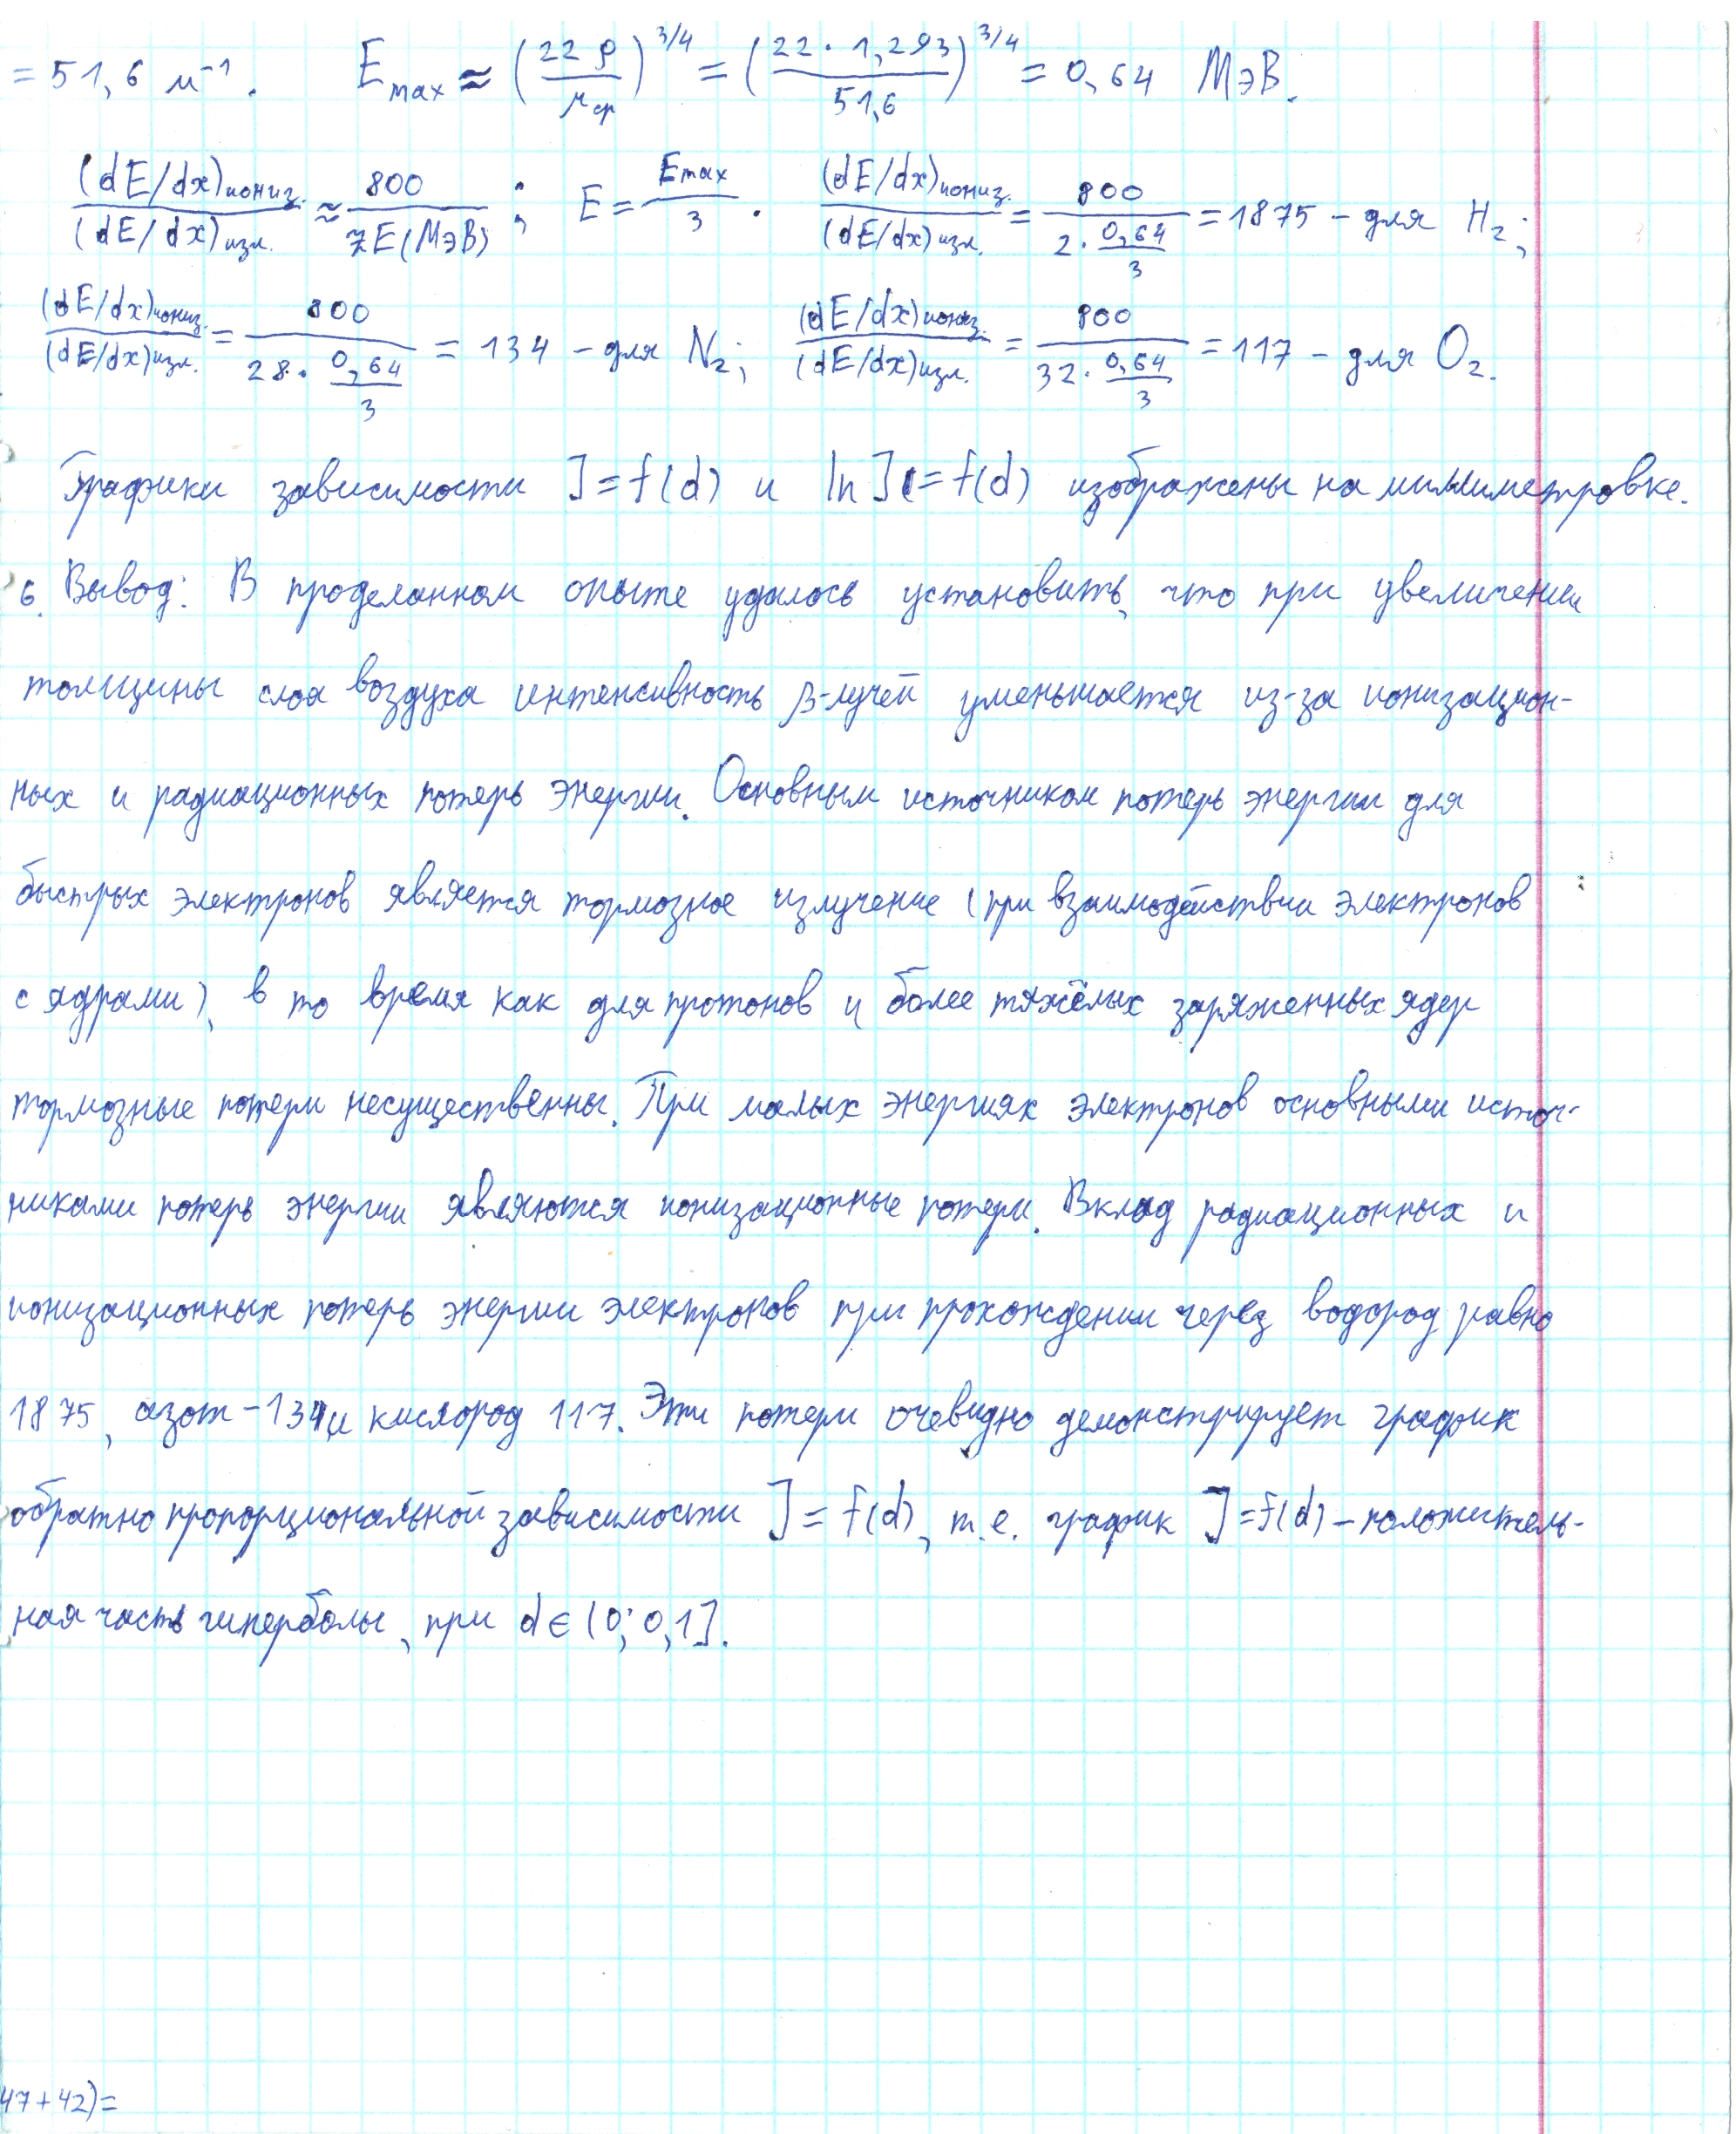 = 51,6 м⁻¹. Emax ≈ (22ρ/μср)^3/4 = (22·1,293/51,6)^3/4 = 0,64 МэВ.
(dE/dx)иониз./(dE/dx)изл. ≈ 800/ZE(МэВ); E = Emax/3. (dE/dx)иониз./(dE/dx)изл. = 800/(2·0,64/3) = 1875 – для H₂;
(dE/dx)иониз./(dE/dx)изл. = 800/(28·0,64/3) = 134 – для N₂; (dE/dx)иониз./(dE/dx)изл. = 800/(32·0,64/3) = 117 – для O₂.
Графики зависимости J=f(d) и ln J=f(d) изображены на миллиметровке.
6. Вывод: В проделанном опыте удалось установить, что при увеличении
толщины слоя воздуха интенсивность β-лучей уменьшается из-за ионизацион-
ных и радиационных потерь энергии. Основным источником потерь энергии для
быстрых электронов является тормозное излучение (при взаимодействии электронов
с ядрами), в то время как для протонов и более тяжёлых заряженных ядер
тормозные потери несущественны. При малых энергиях электронов основными источ-
никами потерь энергии являются ионизационные потери. Вклад радиационных и
ионизационных потерь энергии электронов при прохождении через водород равно
1875, азот – 134 и кислород 117. Эти потери очевидно демонстрирует график
обратно пропорциональной зависимости J=f(d), т.е. график J=f(d) – положитель-
ная часть гиперболы, при d∈(0;0,1].
47+42)=